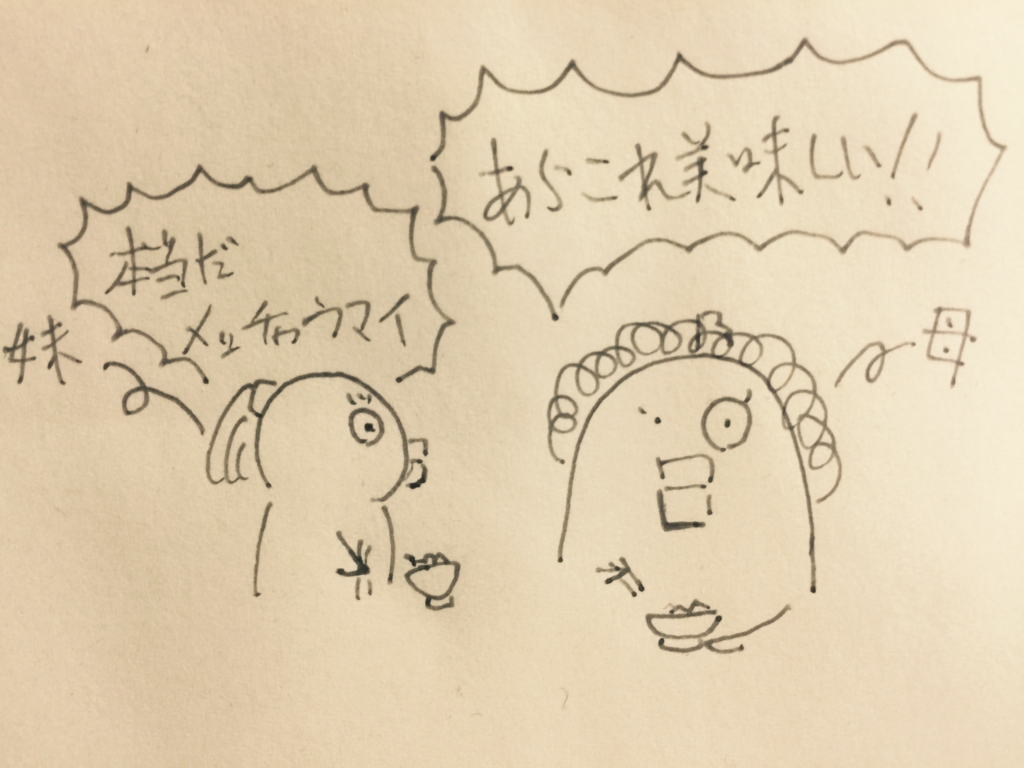 あらこれ美味しい!!
母
本当だ
メッチャウマイ
妹